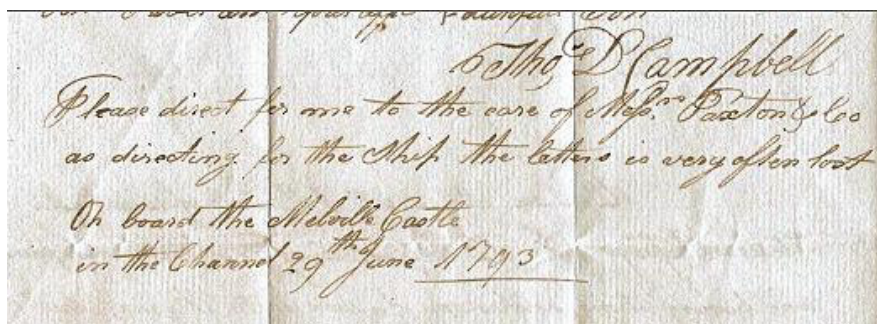 your affte & dutiful Son
Thos D Campbell
Please direct for me to the care of Messrs. Paxton & Co
as directing for the Ship the letters is very often lost
On board the Melville Castle
in the Channel 29th June 1793